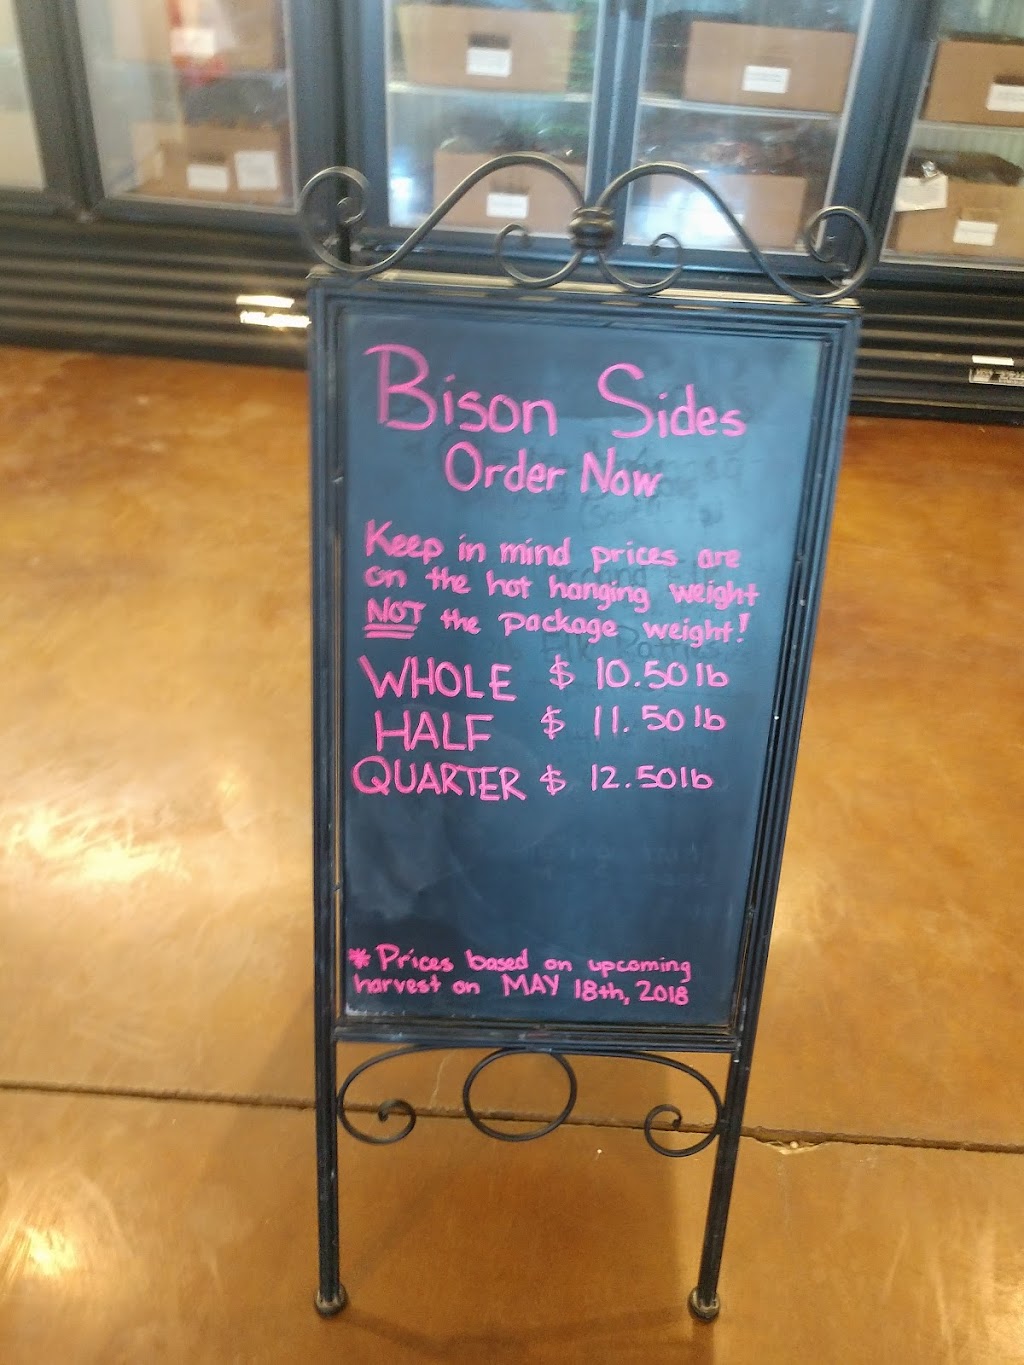 Bison Sides
Order Now
Keep in mind prices are
on the hot hanging weight
NOT the package weight!
WHOLE $ 10.50 lb
HALF $ 11.50 lb
QUARTER $ 12.50 lb
* Prices based on upcoming
harvest on MAY 18th, 2018